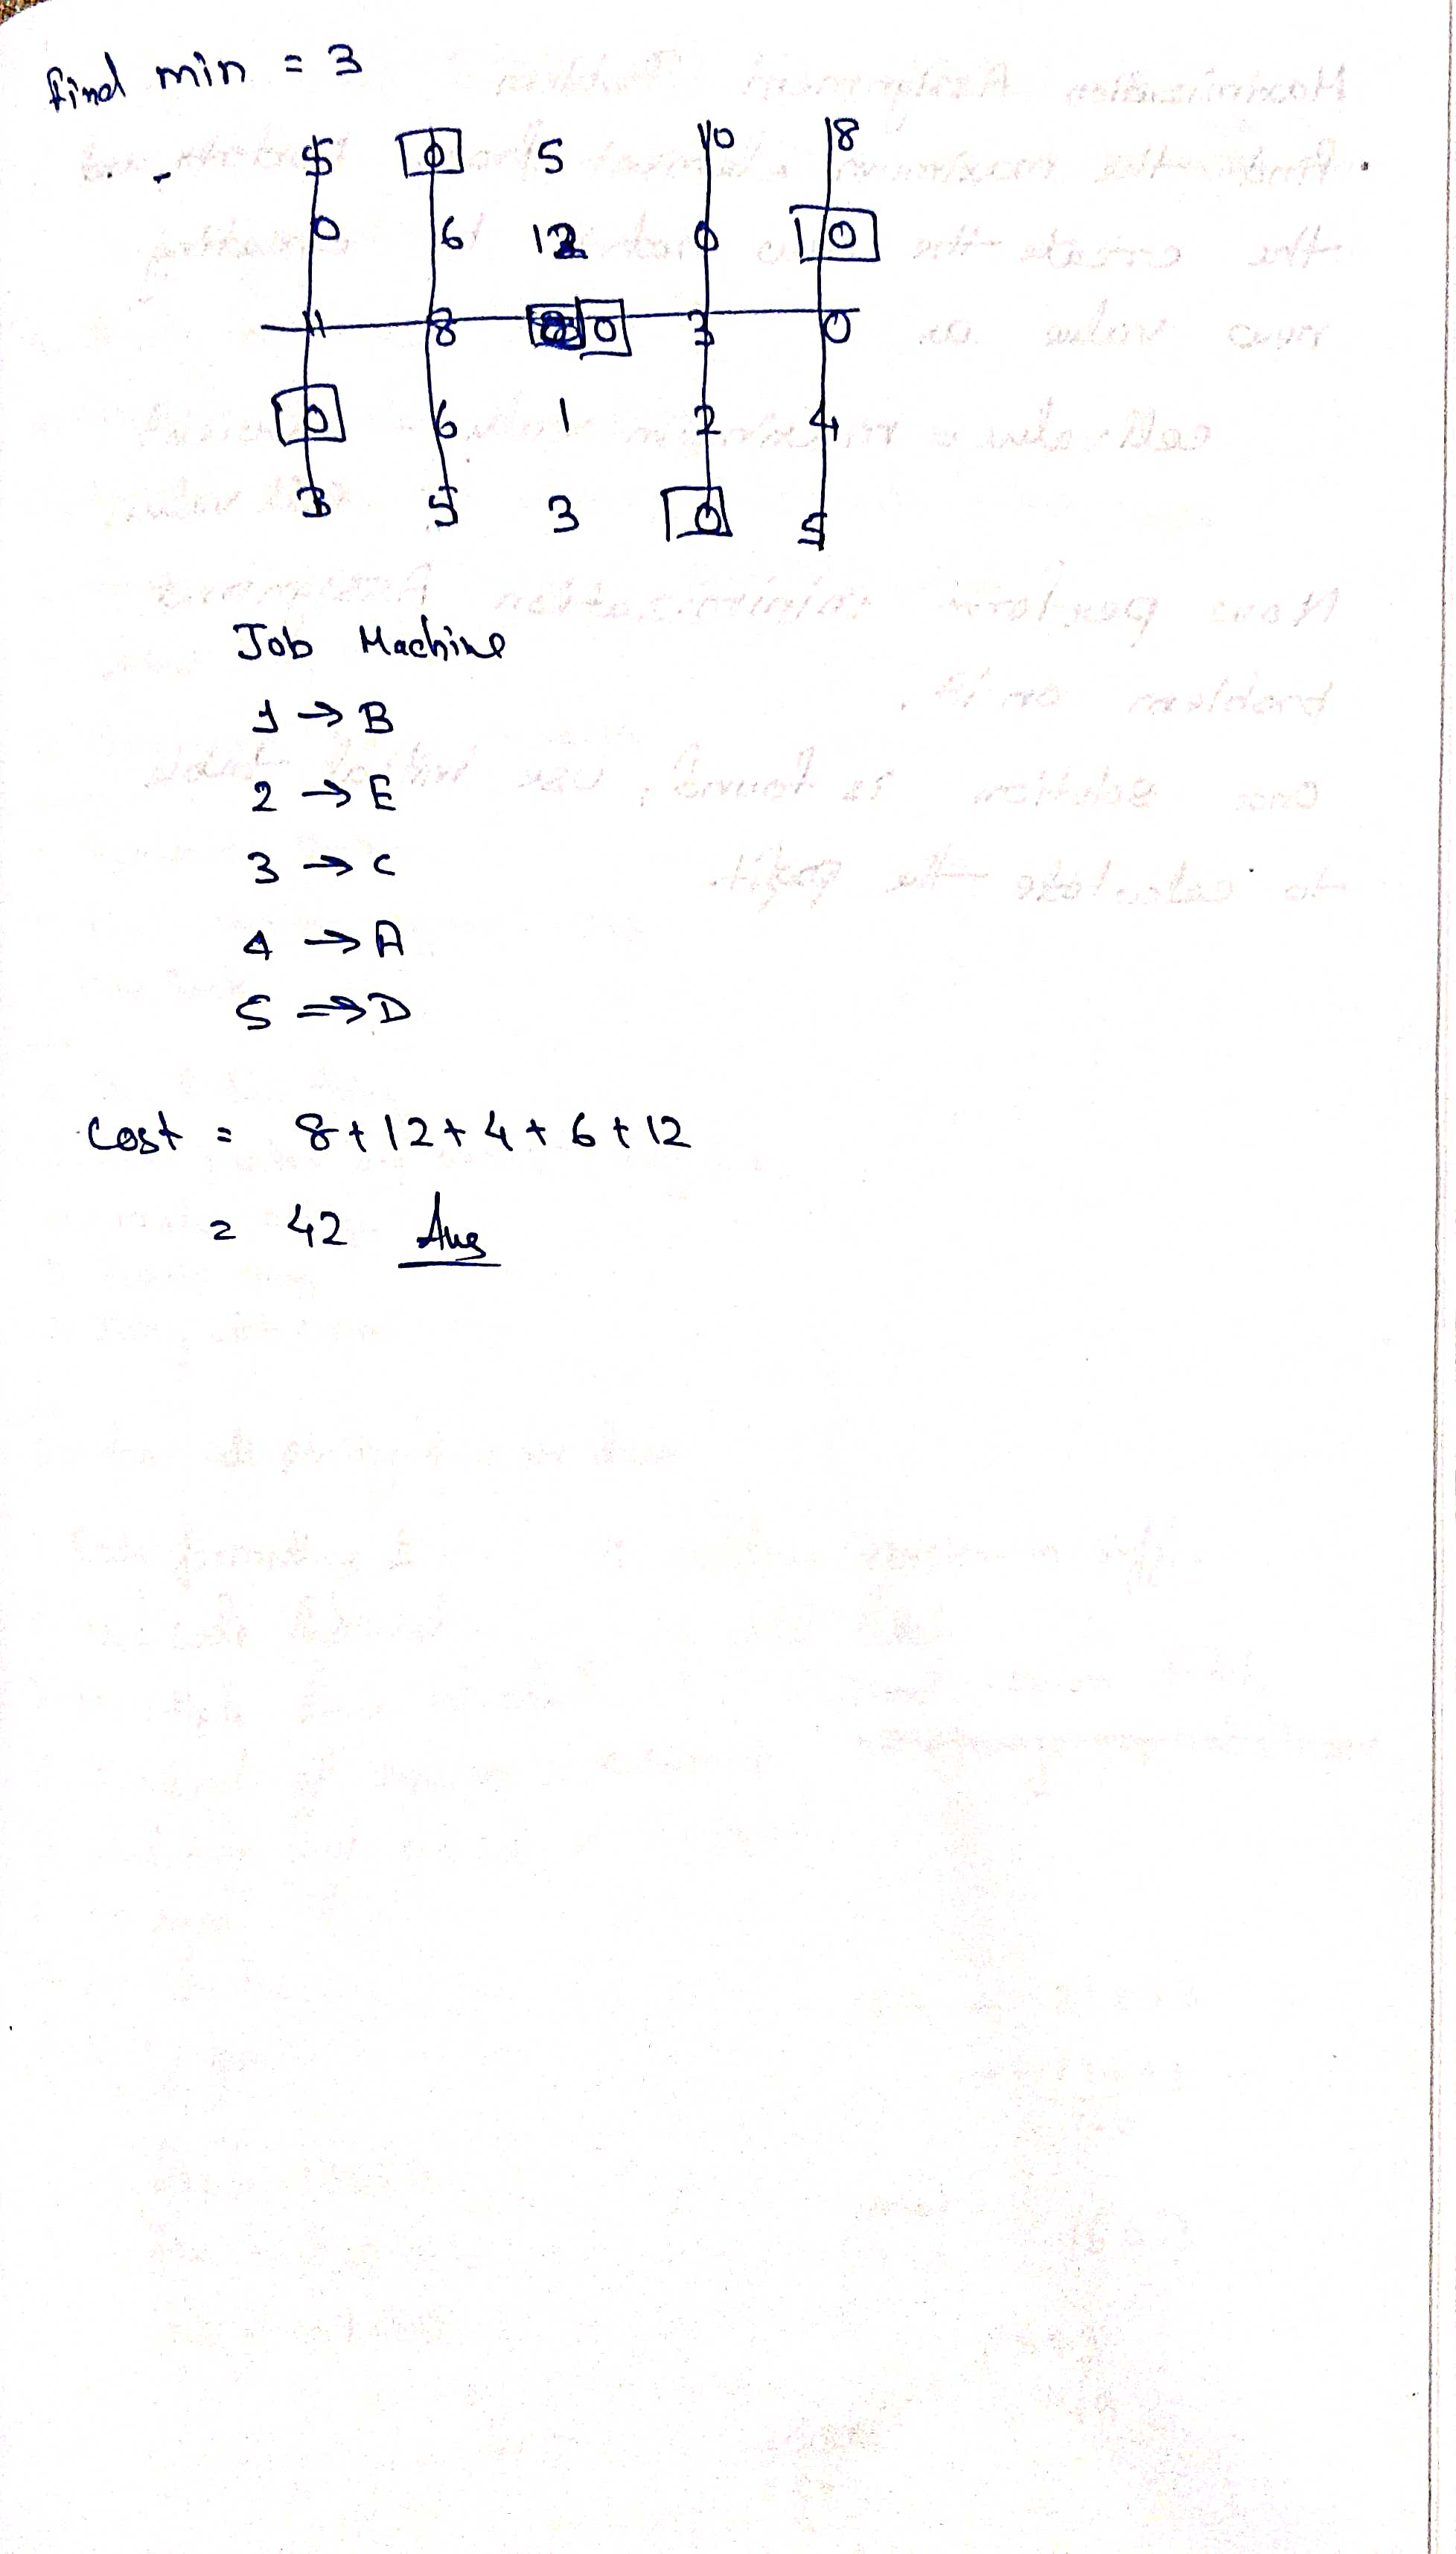 find min = 3
5 0 5 10 8
0 6 12 0 0
11 8 0 3 0
0 6 1 2 4
3 5 3 0 5
Job Machine
1 → B
2 → E
3 → C
4 → A
5 ⇒ D
Cost = 8+12+4+6+12
= 42 Ans